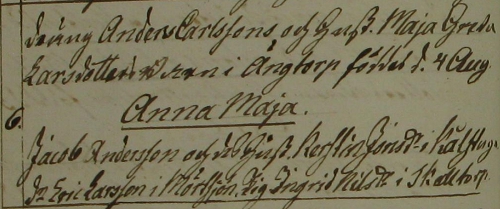 dräng Anders Carlssons och Hust. Maja Greta
Larsdotters i Ängtorp föddt d. 4 Aug
Anna Maja.
6. Jacob Andersson och dess Hust. Kerstin Jonsdr i
Dr. Eric Larsson i Mörtsjön. Pig. Ingrid Nilsdr i Skaltorp.